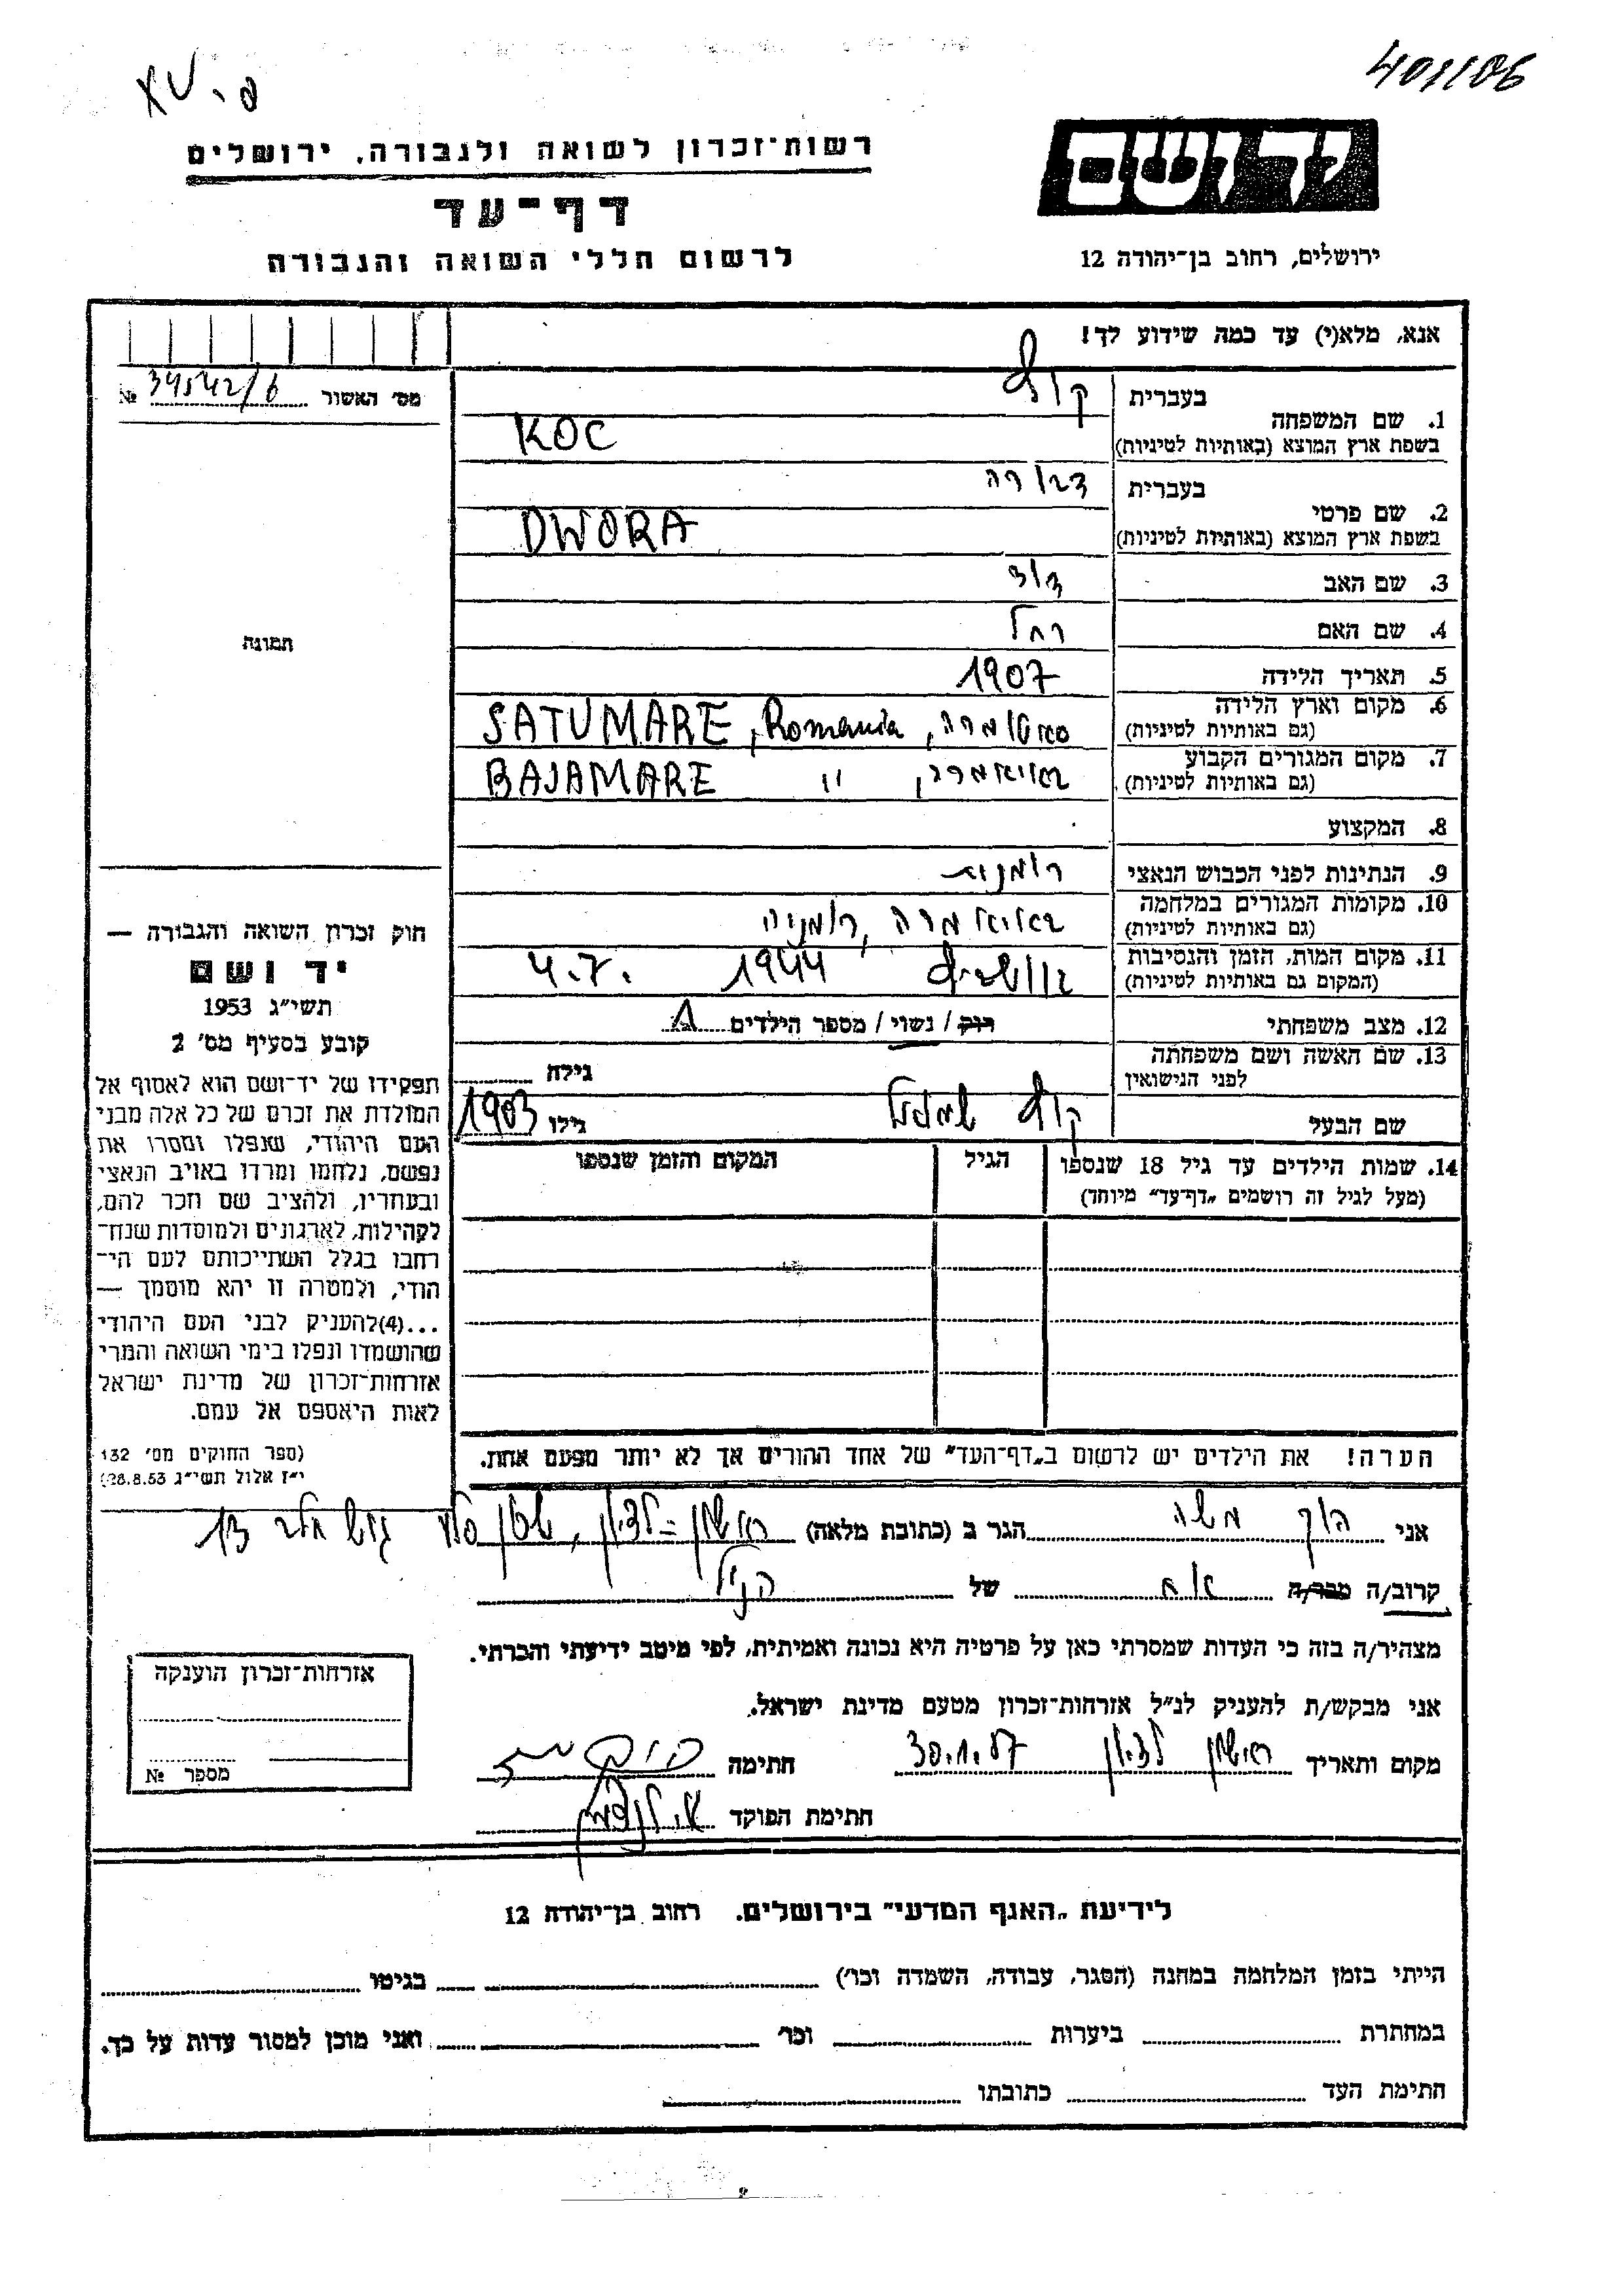 401106
רשות־זכרון לשואה ולגבורה, ירושלים
יד ושם
דף־עד
לרשום חללי השואה והגבורה
ירושלים, רחוב בן־יהודה 12
אנא, מלא(י) עד כמה שידוע לך!
מס׳ האשור 34542/6 №
בעברית
1. שם המשפחה
בשפת ארץ המוצא (באותיות לטיניות) KOC
בעברית דבורה
2. שם פרטי
בשפת ארץ המוצא (באותיות לטיניות) DWORA
3. שם האב דוד
4. שם האם רחל
תמונה
5. תאריך הלידה 1907
6. מקום וארץ הלידה
(גם באותיות לטיניות) סאטומרה, SATUMARE, Romania
7. מקום המגורים הקבוע
(גם באותיות לטיניות) באיאמרה, " BAJAMARE
8. המקצוע
9. הנתינות לפני הכבוש הנאצי רומנית
10. מקומות המגורים במלחמה
(גם באותיות לטיניות) באיאמרה, רומניה
11. מקום המות, הזמן והנסיבות
(המקום גם באותיות לטיניות) אושביץ 1944 4.7.
12. מצב משפחתי רוק / נשוי / מספר הילדים 1
13. שם האשה ושם משפחתה
לפני הנישואין גילה
שם הבעל שמואל גילו 1903
14. שמות הילדים עד גיל 18 שנספו
(מעל לגיל זה רושמים „דף־עד” מיוחד)
הגיל
המקום והזמן שנספו
הערה! את הילדים יש לרשום ב„דף־העד” של אחד ההורים אך לא יותר מפעם אחת.
חוק זכרון השואה והגבורה —
יד ושם
תשי״ג 1953
קובע בסעיף מס׳ 2
תפקידו של יד־ושם הוא לאסוף אל
המולדת את זכרם של כל אלה מבני
העם היהודי, שנפלו ומסרו את
נפשם, נלחמו ומרדו באויב הנאצי
ובעוזריו, ולהציב שם וזכר להם,
לקהילות, לארגונים ולמוסדות שנח־
רבו בגלל השתייכותם לעם הי־
הודי, ולמטרה זו יהא מוסמך —
...(4)להעניק לבני העם היהודי
שהושמדו ונפלו בימי השואה והמרי
אזרחות־זכרון של מדינת ישראל
לאות היאספם אל עמם.
(ספר החוקים מס׳ 132
י״ז אלול תשי״ג 28.8.53)
אני משה הגר ב (כתובת מלאה) ראשון־לציון, 13
קרוב/ה מכר/ה אח של הנ״ל
מצהיר/ה בזה כי העדות שמסרתי כאן על פרטיה היא נכונה ואמיתית, לפי מיטב ידיעתי והכרתי.
אני מבקש/ת להעניק לנ״ל אזרחות־זכרון מטעם מדינת ישראל.
מקום ותאריך ראשון לציון 30.1.57 חתימה
חתימת הפוקד
אזרחות־זכרון הוענקה
מספר №
לידיעת „האגף המדעי” בירושלים. רחוב בן־יהודה 12
הייתי בזמן המלחמה במחנה (הסגר, עבודה, השמדה וכו׳) בגיטו
במחתרת ביערות וכו׳ ואני מוכן למסור עדות על כך.
חתימת העד כתובתו